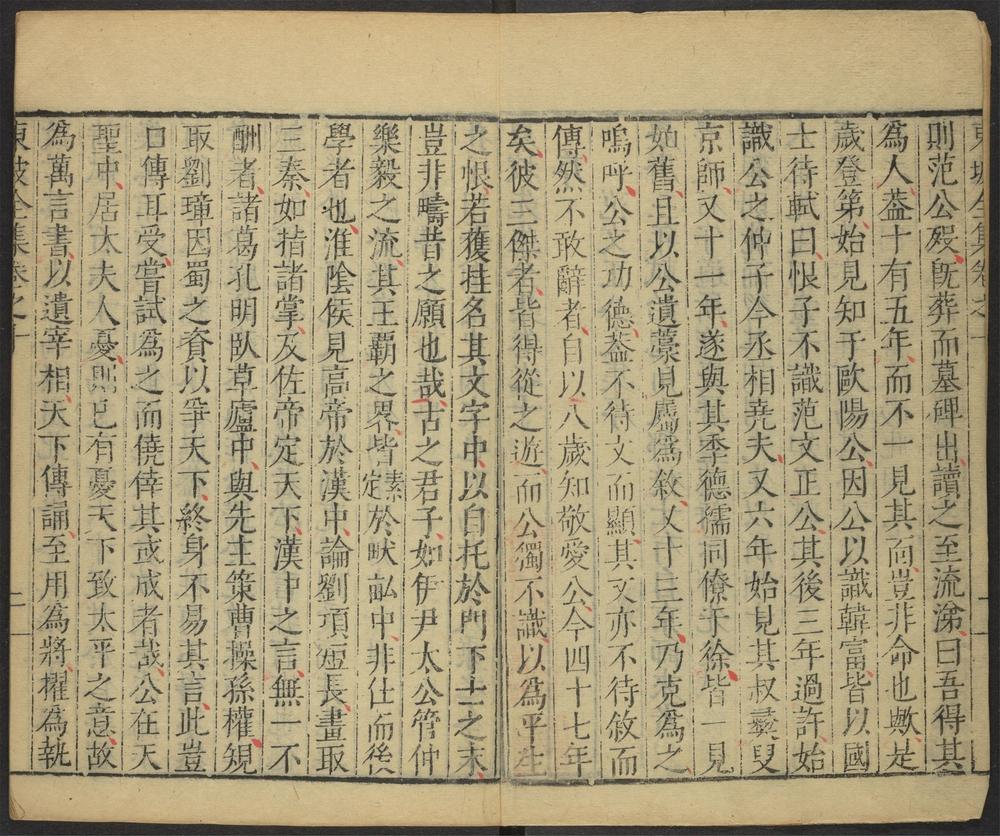 東坡全集卷之十
則范公歿旣葬而墓碑出讀之至流涕曰吾得其
為人葢十有五年而不一見其面豈非命也歟是
歲登第始見知于歐陽公因公以識韓富皆以國
士待軾曰恨子不識范文正公其後三年過許始
識公之仲子今丞相堯夫又六年始見其叔彝叟
京師又十一年遂與其季德孺同僚于徐皆一見
如舊且以公遺藁見屬為敘又十三年乃克為之
嗚呼公之功德葢不待文而顯其文亦不待敘而
傳然不敢辭者自以八歲知敬愛公今四十七年
矣彼三傑者皆得從之遊而公獨不識以為平生
之恨若獲挂名其文字中以自托於門下士之末
豈非疇昔之願也哉古之君子如伊尹太公管仲
樂毅之流其王霸之畧皆素定於畎畝中非仕而後
學者也淮陰侯見高帝於漢中論劉項短長畫取
三秦如指諸掌及佐帝定天下漢中之言無一不
酬者諸葛孔明臥草廬中與先主策曹操孫權規
取劉璋因蜀之資以爭天下終身不易其言此豈
口傳耳受嘗試為之而僥倖其或成者哉公在天
聖中居太夫人憂則已有憂天下致太平之意故
為萬言書以遺宰相天下傳誦至用為將擢為執
東坡全集卷之十